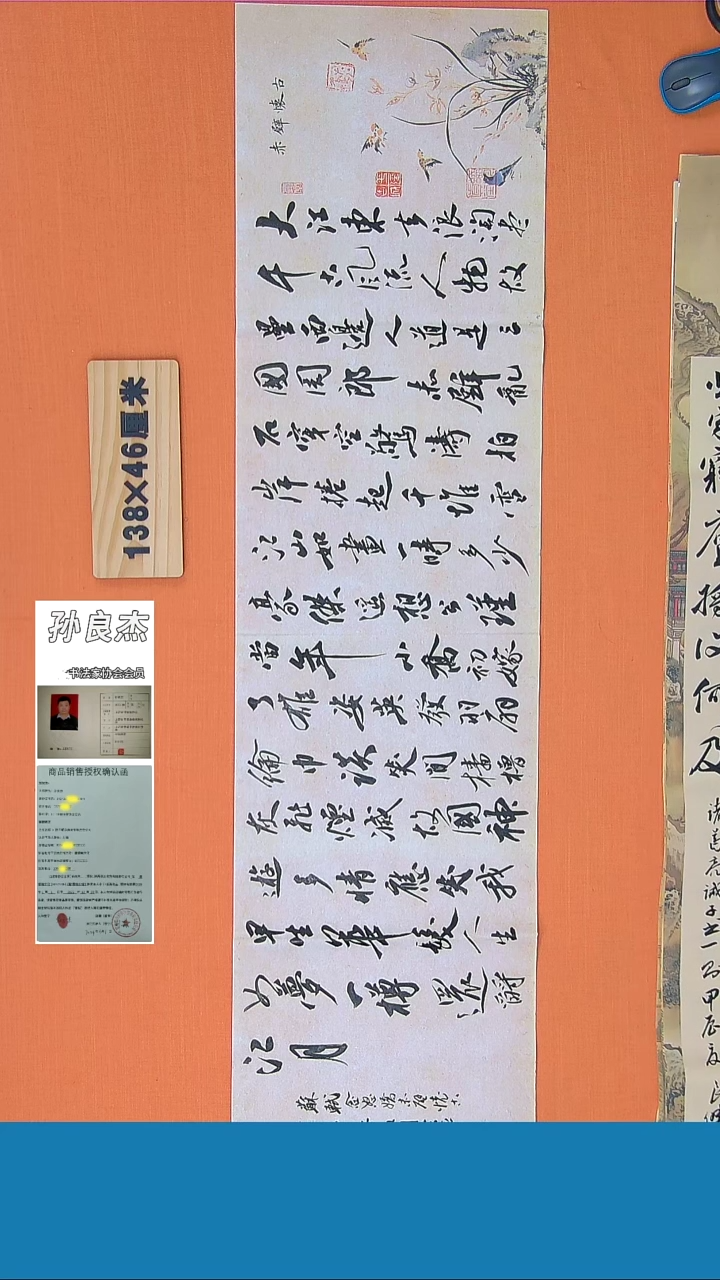 赤壁懷古
大江東去浪淘尽
千古風流人物故
壘西邊人道是三
國周郎赤壁亂
石穿空驚濤拍
岸捲起千堆雪
江山如畫一時多少
豪傑遥想公瑾
當年小喬初嫁
了雄姿英發羽扇
綸巾談笑間檣櫓
灰飛煙滅故國神
遊多情應笑我
早生華髮人生
如夢一樽還酹
江月
蘇軾念奴嬌赤壁懷古
138×46厘米
孙良杰
书法家协会会员
商品销售授权确认函
守窮廬將復何及
諸葛亮誡子書一 甲辰夏